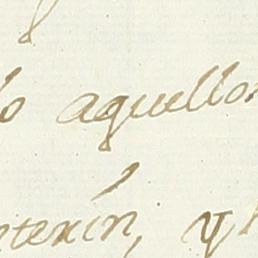 lo aquellos
nterin, y